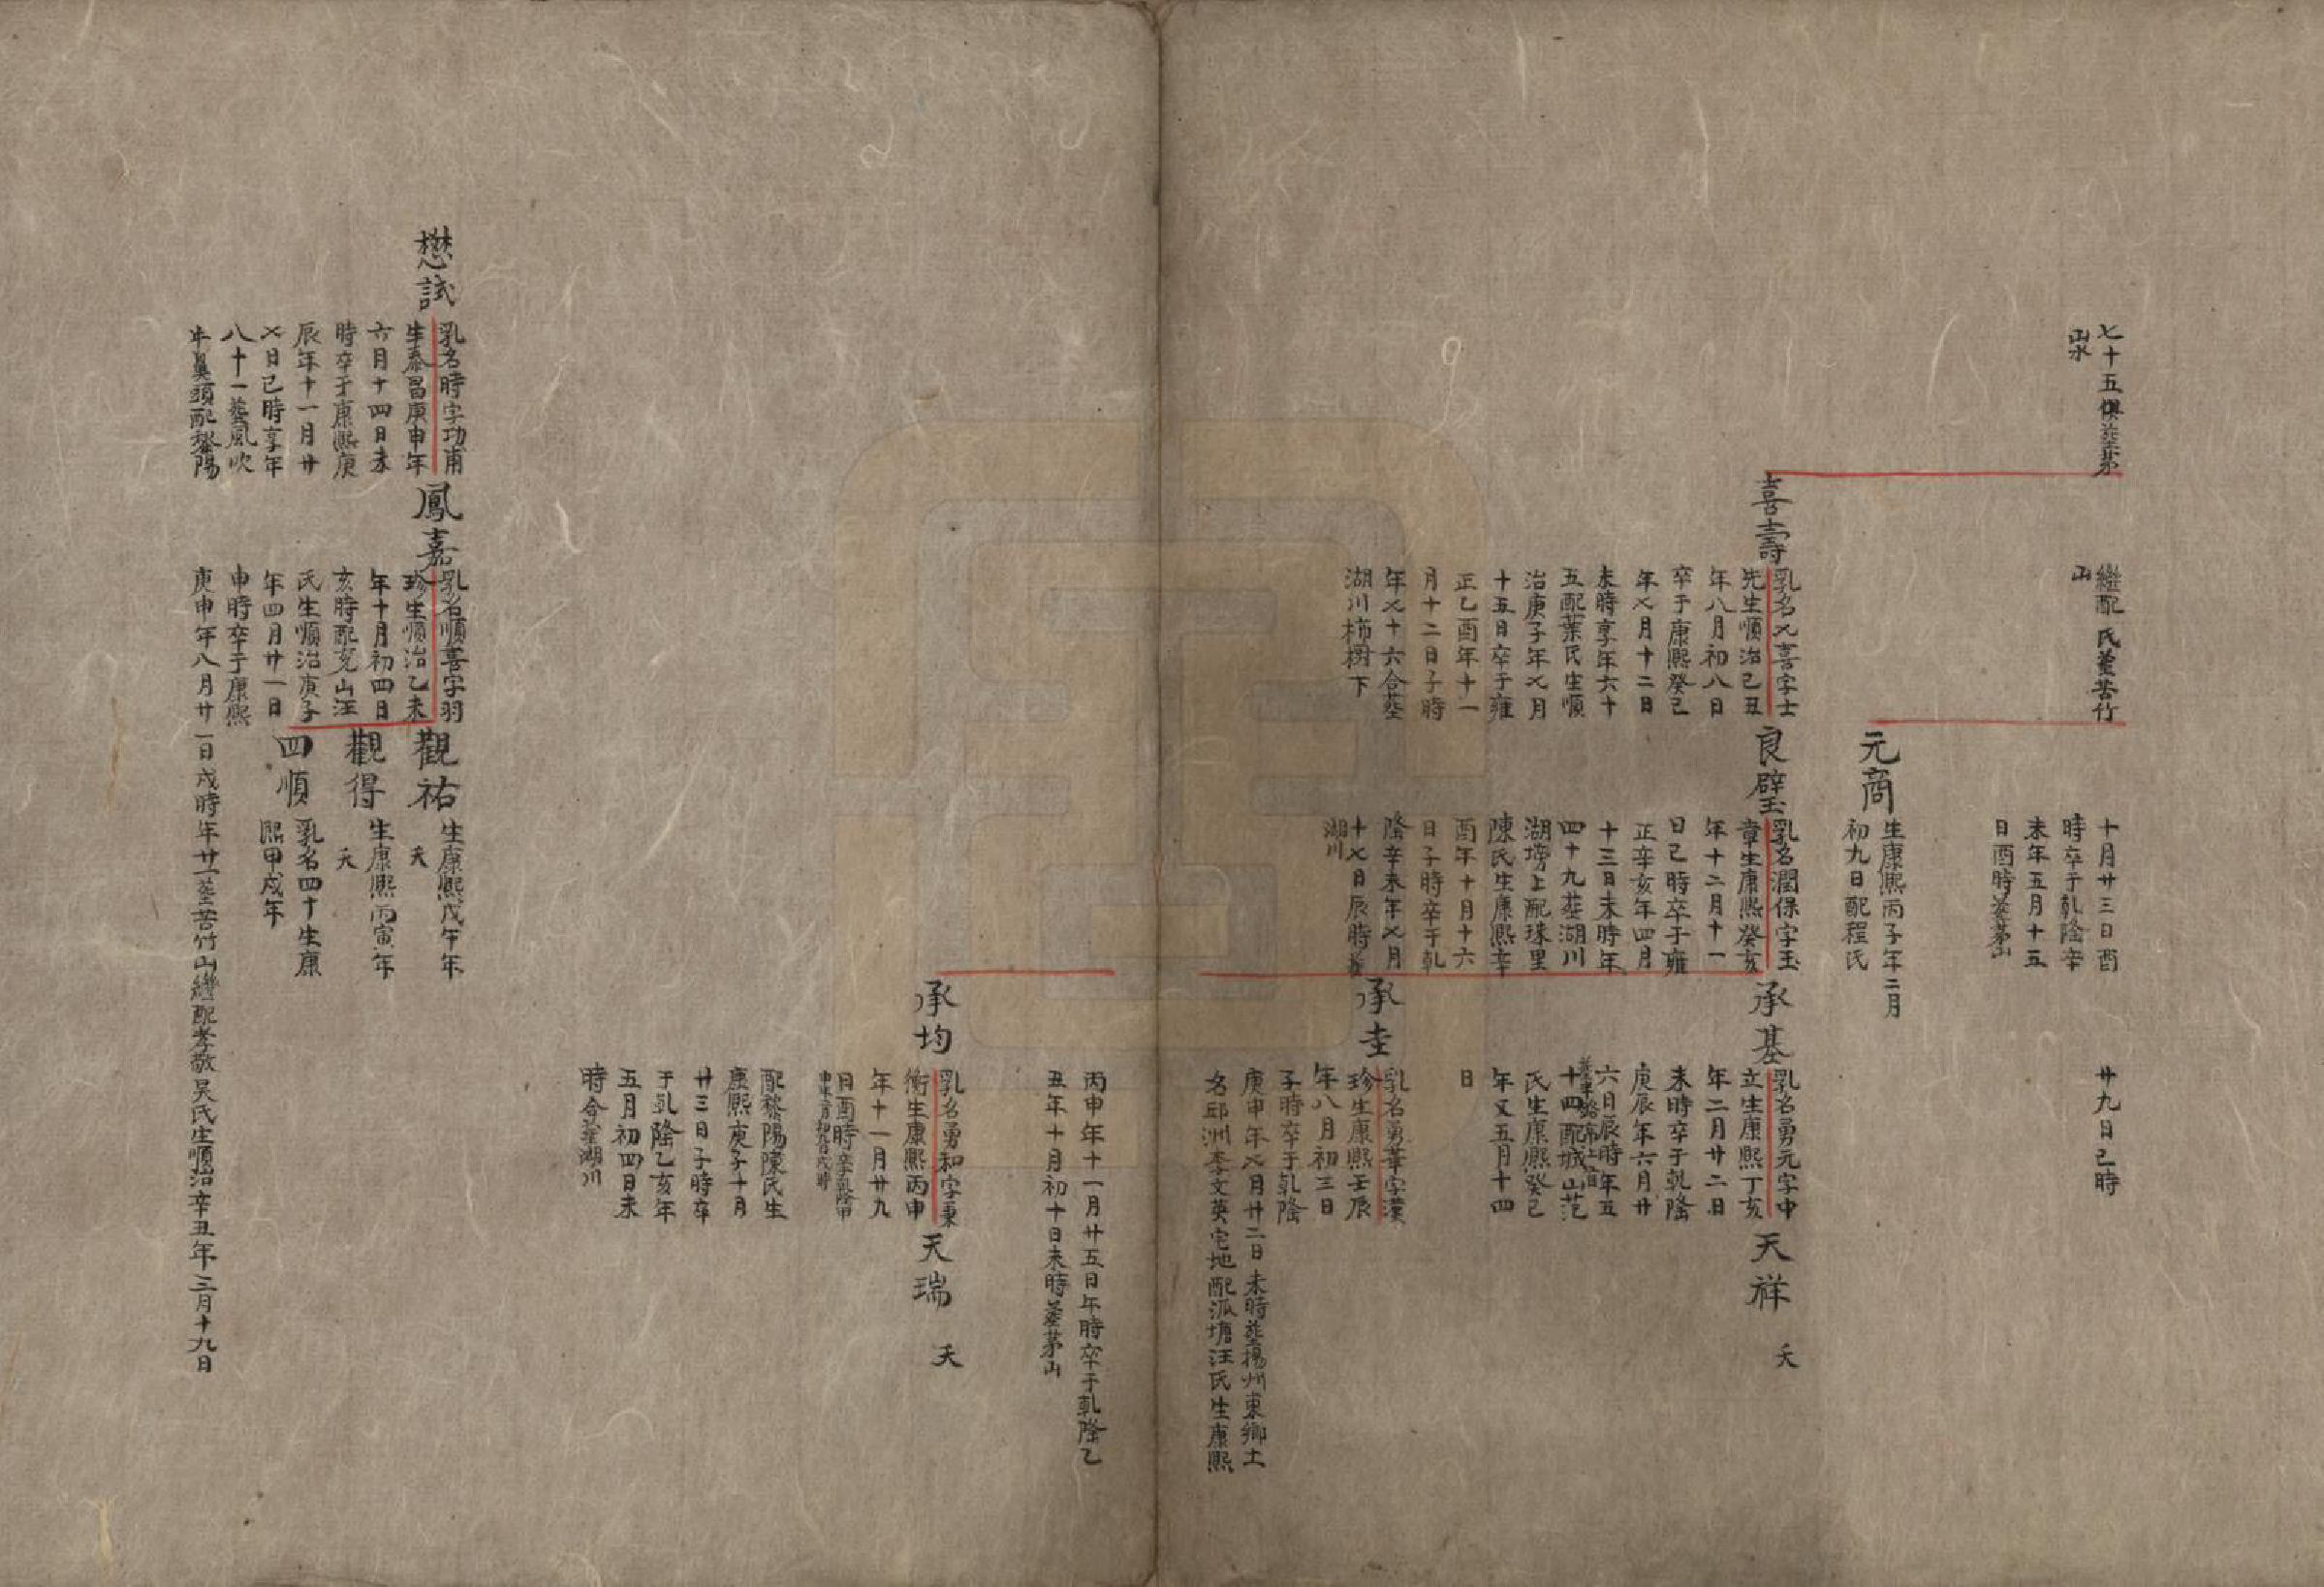 七十五俱塟茅
山水
繼配 氏塟苦竹
山
十月廿三日酉
時卒于乹隆辛
未年五月十五
日酉時塟茅山
廿九日己時
元商
生康熙丙子年二月
初九日配程氏
喜壽
乳名乂喜字士
先生順治己丑
年八月初八日
卒于康熙癸己
年乂月十二日
未時享年六十
五配葉氏生順
治庚子年乂月
十五日卒于雍
正乙酉年十一
月十二日子時
年乂十六合塟
湖川柿樹下
良璧
乳名潤保字玉
章生康熙癸亥
年十二月十一
日己時卒于雍
正辛亥年四月
十三日未時年
四十九塟湖川
湖塝上配珠里
陳氏生康熙辛
酉年十月十六
日子時卒于乹
隆辛未年乂月
十乂日辰時塟
湖川
承基
乳名勇元字中
立生康熙丁亥
年二月廿二日
未時卒于乹隆
庚辰年六月廿
六日辰時年五
十四配城山范
氏生康熙癸己
年又五月十四
日
天祥
夭
承圭
乳名勇華字漢
珍生康熙壬辰
年八月初三日
子時卒于乹隆
庚申年乂月廿二日未時塟揚州東鄉土
名邱洲李文英宅地配派塘汪氏生康熙
丙申年十一月廿五日午時卒于乹隆乙
丑年十月初十日未時塟茅山
承均
乳名勇和字秉
衡生康熙丙申
年十一月廿九
日酉時卒乹隆甲
申年 月初九日戌時
配黎陽陳氏生
康熙庚子十月
廿三日子時卒
于乹隆乙亥年
五月初四日未
時合塟湖川
天瑞
夭
懋試
乳名時字功甫
生泰昌庚申年
六月十四日未
時卒于康熙庚
辰年十一月廿
乂日己時享年
八十一塟風吹
牛鼻頭配黎陽
鳳嘉
乳名順喜字羽
珍生順治乙未
年十月初四日
亥時配兗山汪
氏生順治庚子
年四月廿一日
申時卒于康熙
庚申年八月廿一日戌時年廿一塟苦竹山繼配孝敬吴氏生順治辛丑年三月十九日
觀祐
生康熙戊午年
夭
觀得
生康熙丙寅年
夭
四順
乳名四十生康
熙甲戌年